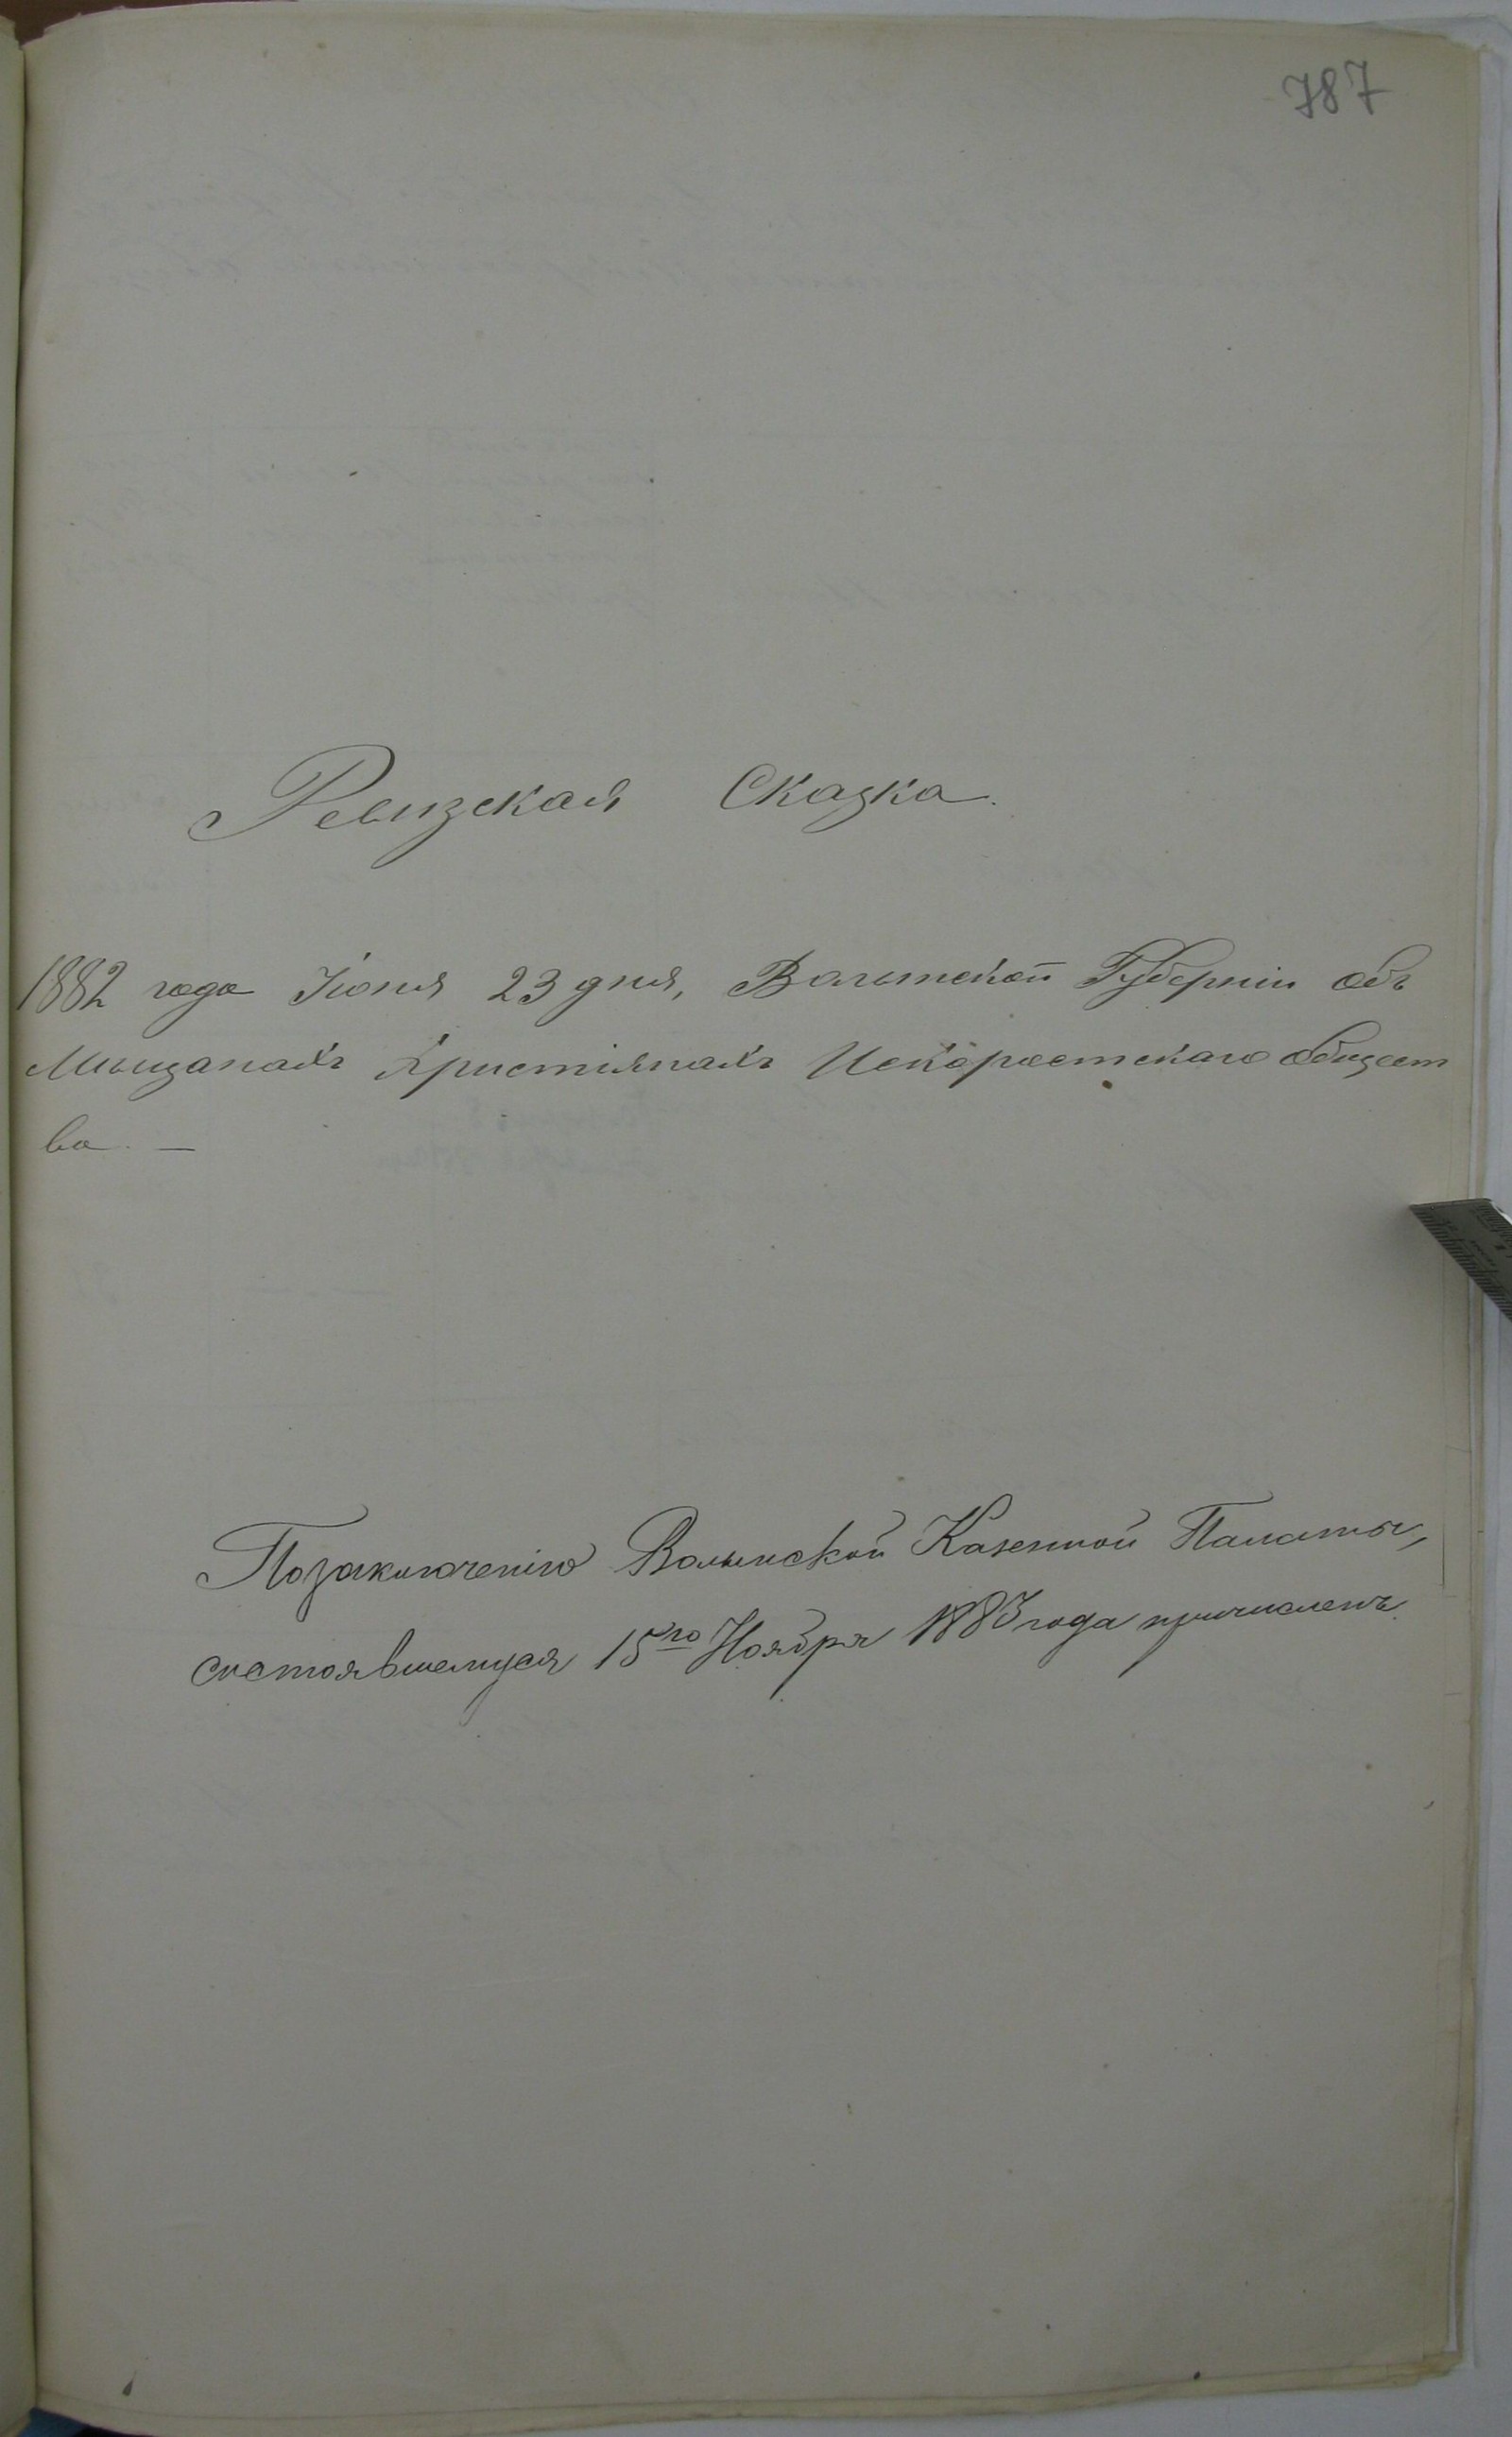 787
Ревизская Сказка.
1882 года Іюня 23 дня, Волынской Губерніи объ
Мѣщанахъ Христіянахъ Искоростскаго общест
ва. —
По заключенію Волынской Казенной Палаты,
состоявшемуся 15го Ноября 1883 года причисленъ